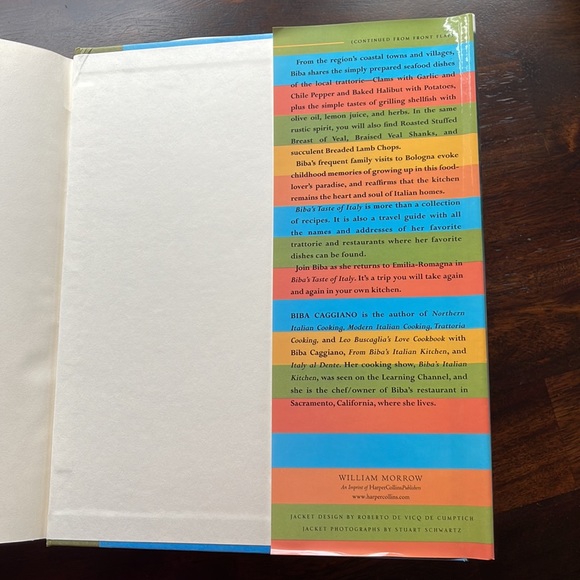 (CONTINUED FROM FRONT FLAP)
From the region's coastal towns and villages,
Biba shares the simply prepared seafood dishes
of the local trattorie—Clams with Garlic and
Chile Pepper and Baked Halibut with Potatoes,
plus the simple tastes of grilling shellfish with
olive oil, lemon juice, and herbs. In the same
rustic spirit, you will also find Roasted Stuffed
Breast of Veal, Braised Veal Shanks, and
succulent Breaded Lamb Chops.
Biba's frequent family visits to Bologna evoke
childhood memories of growing up in this food-
lover's paradise, and reaffirms that the kitchen
remains the heart and soul of Italian homes.
Biba's Taste of Italy is more than a collection
of recipes. It is also a travel guide with all
the names and addresses of her favorite
trattorie and restaurants where her favorite
dishes can be found.
Join Biba as she returns to Emilia-Romagna in
Biba's Taste of Italy. It's a trip you will take again
and again in your own kitchen.
BIBA CAGGIANO is the author of Northern
Italian Cooking, Modern Italian Cooking, Trattoria
Cooking, and Leo Buscaglia's Love Cookbook with
Biba Caggiano, From Biba's Italian Kitchen, and
Italy al Dente. Her cooking show, Biba's Italian
Kitchen, was seen on the Learning Channel, and
she is the chef/owner of Biba's restaurant in
Sacramento, California, where she lives.
WILLIAM MORROW
An Imprint of HarperCollinsPublishers
www.harpercollins.com
JACKET DESIGN BY ROBERTO DE VICQ DE CUMPTICH
JACKET PHOTOGRAPHS BY STUART SCHWARTZ